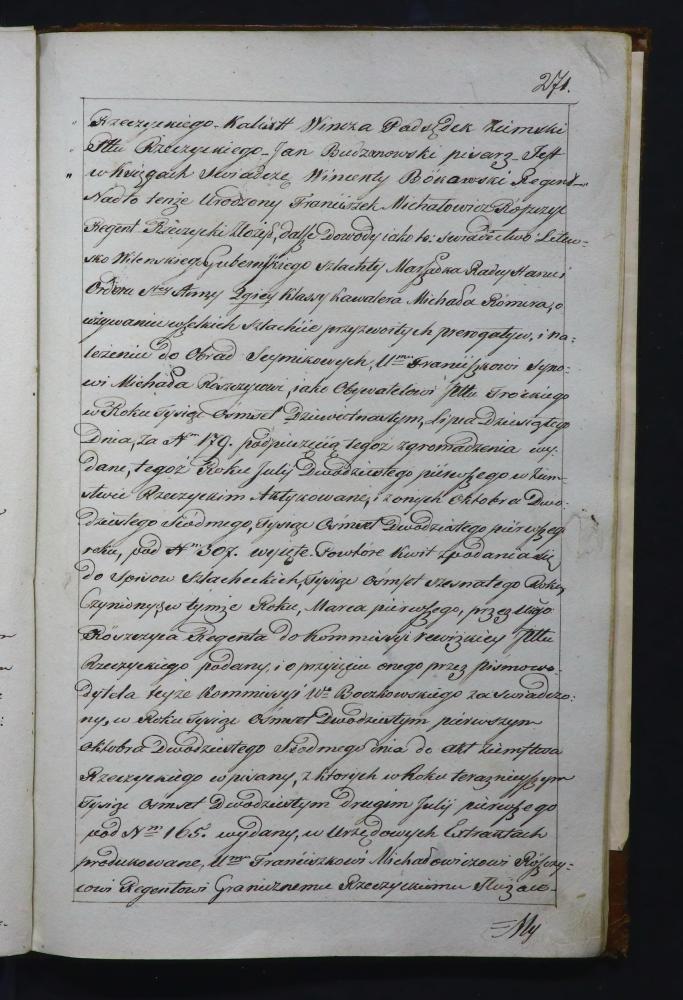 271.
Rzeczyckiego - Kalixt Wincza Podsędek Ziemski
Pttu Rzeczyckiego - Jan Budzanowski pisarz - Jest
w Xięgach Swiadczę Wincenty Regent -
Nadto tenże Urodzony Franciszek Michałowicz Roszczyc
Regent Rzeczycki złożył, dalsze Dowody iako to: Swiadectwo Litew-
sko Wilenskiego Gubernskiego szlachty Marszałka Radcy Stanu i
Orderu Stey Anny 2giey Klassy Kawalera Michała Römera, o
używaniu wszelkich szlachcie przyzwoitych prerogatyw, i na-
leżeniu do Obrad Seymikowych, Urmu Franciszkowi Syno-
wi Michała Roszczycowi, iako Obywatelowi Pttu Trockiego
w Roku Tysiąc Osmset Dziewietnastym, Lipca Dziesiątego
Dnia, za Nm 179. pod pieczęcią tegoż zgromadzenia wy-
dane, tegoż Roku Julij Dwudziestego pierwszego w Ziem-
stwie Rzeczyckim Aktykowane, i z onych Oktobra Dwu-
dziestego Siódmego, Tysiąc Osmset Dwudziestego pierwszego
roku, pod Nm 307. wyięte. Powtóre kwit z podania się
do Spisow Szlacheckich, Tysiąc Osmset szesnastego Roku
Czyniony, w tymże Roku, Marca pierwszego, przez tegoż
Röszczyca Regenta do Kommissyi rewizkiey Pttu
Rzeczyckiego podany, i o przyięciu onego przez pismowo-
dytela teyże Kommissyi Wo Boczkowskiego zaswiadczo-
ny, w Roku Tysiąc Osmset Dwudziestym pierwszym
Oktobra Dwudziestego Siodmego dnia do akt ziemstwa
Rzeczyckiego wpisany, z ktorych w Roku teraznieyszym
Tysiąc Osmset Dwudziestym drugim Julij pierwszego
pod Nm 165. wydany, w Urzędowych Extraktach
produkowane, Urmu Franciszkowi Michałowiczowi Roszczy-
cowi Regentowi Granicznemu Rzeczyckiemu Służące -
= My